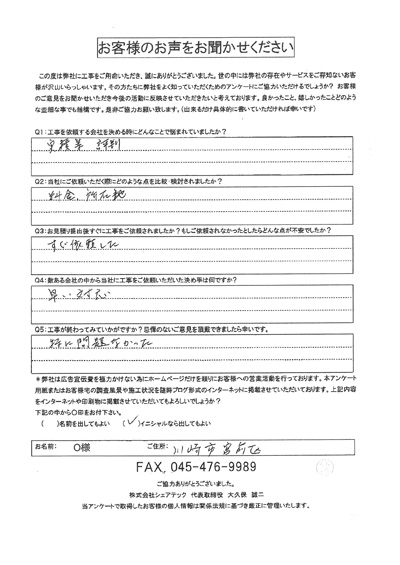 お客様のお声をお聞かせください
この度は弊社に工事をご用命いただき、誠にありがとうございました。世の中には弊社の存在やサービスをご存知ないお客
様が沢山いらっしゃいます。その方たちに弊社をよく知っていただくためのアンケートにご協力いただけるでしょうか？ お客様
のご意見をお聞かせいただき今後の活動に反映させていただきたいと考えております。良かったこと、嬉しかったことどのよう
な些細な事でも結構です。是非ご協力お願い致します。（出来るだけ具体的に書いていただければ幸いです）
Q1：工事を依頼する会社を決める時にどんなことで悩まれていましたか？
実積等 評判
Q2：当社にご依頼いただく際にどのような点を比較・検討されましたか？
料金、所在地
Q3：お見積り提出後すぐに工事をご依頼されましたか？もしご依頼されなかったとしたらどんな点が不安でしたか？
すぐ依頼した
Q4：数ある会社の中から当社に工事をご依頼いただいた決め手は何ですか？
早い対応
Q5：工事が終わってみていかがですか？忌憚のないご意見を頂戴できましたら幸いです。
特に問題なかった
＊弊社は広告宣伝費を極力かけない為にホームページだけを頼りにお客様への営業活動を行っております。本アンケート
用紙またはお客様宅の調査風景や施工状況を随時ブログ形式のインターネットに掲載させていただいております。上記内容
をインターネットや印刷物に掲載させていただいてもよろしいでしょうか？
下記の中から〇印をお付け下さい。
（ ）名前を出してもよい （✓）イニシャルなら出してもよい
お名前： O様 ご住所： 川崎市宮前区
FAX. 045-476-9989
ご協力ありがとうございました。
株式会社シェアテック 代表取締役 大久保 誠二
当アンケートで取得したお客様の個人情報は関係法規に基づき厳正に管理いたします。